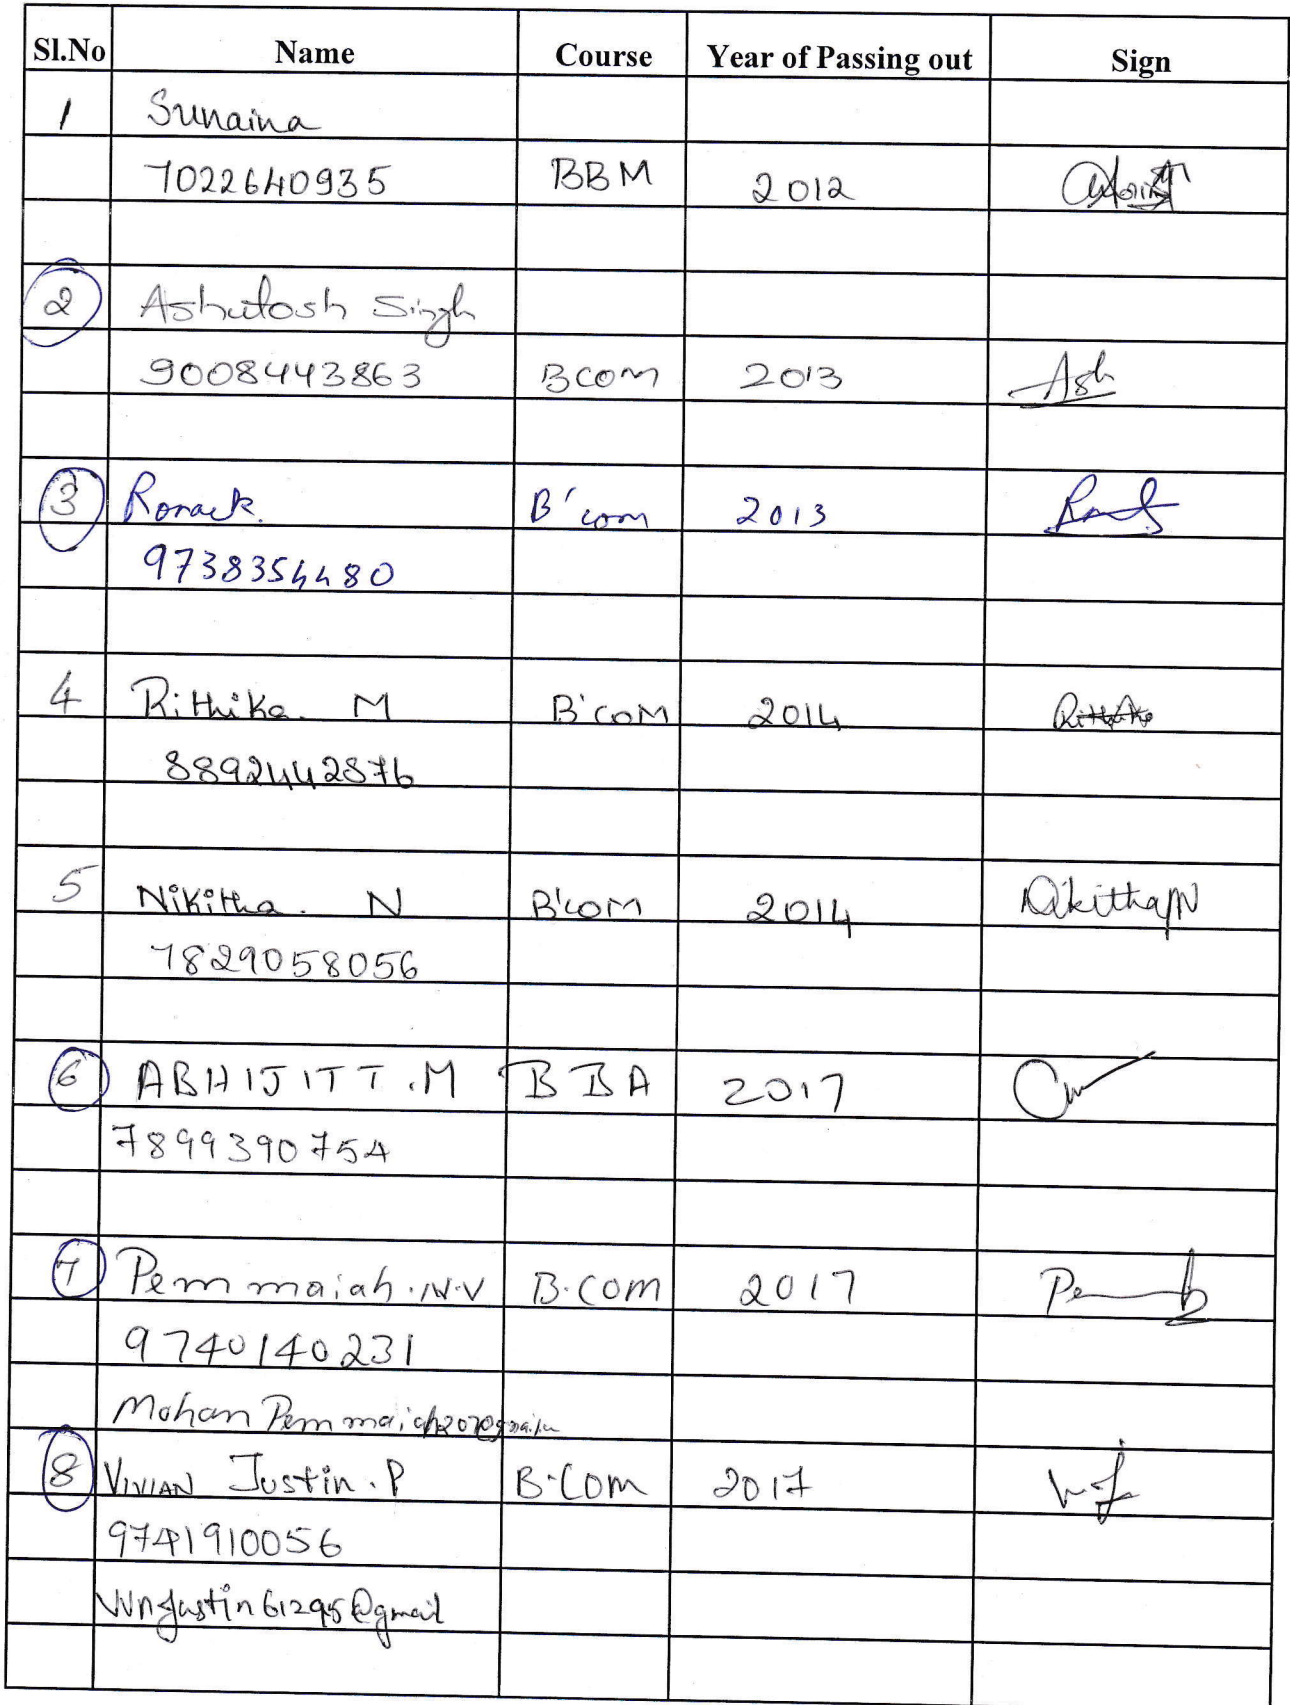 Sl.No Name Course Year of Passing out Sign
1 Sunaina
7022640935 BBM 2012
2 Ashutosh Singh
9008443863 BCOM 2013 Ash
3 Ronack. B'com 2013
9738354480
4 Rithika. M B'COM 2014 Rithika
8892442876
5 Nikitha. N B'COM 2014 Nikitha N
7829058056
6 ABHIJITT.M BBA 2017
7899390754
7 Pemmaiah.N.V B.COM 2017
9740140231
Mohan Pemmaiah
8 VIVIAN Justin.P B.COM 2017
9741910056
@gmail